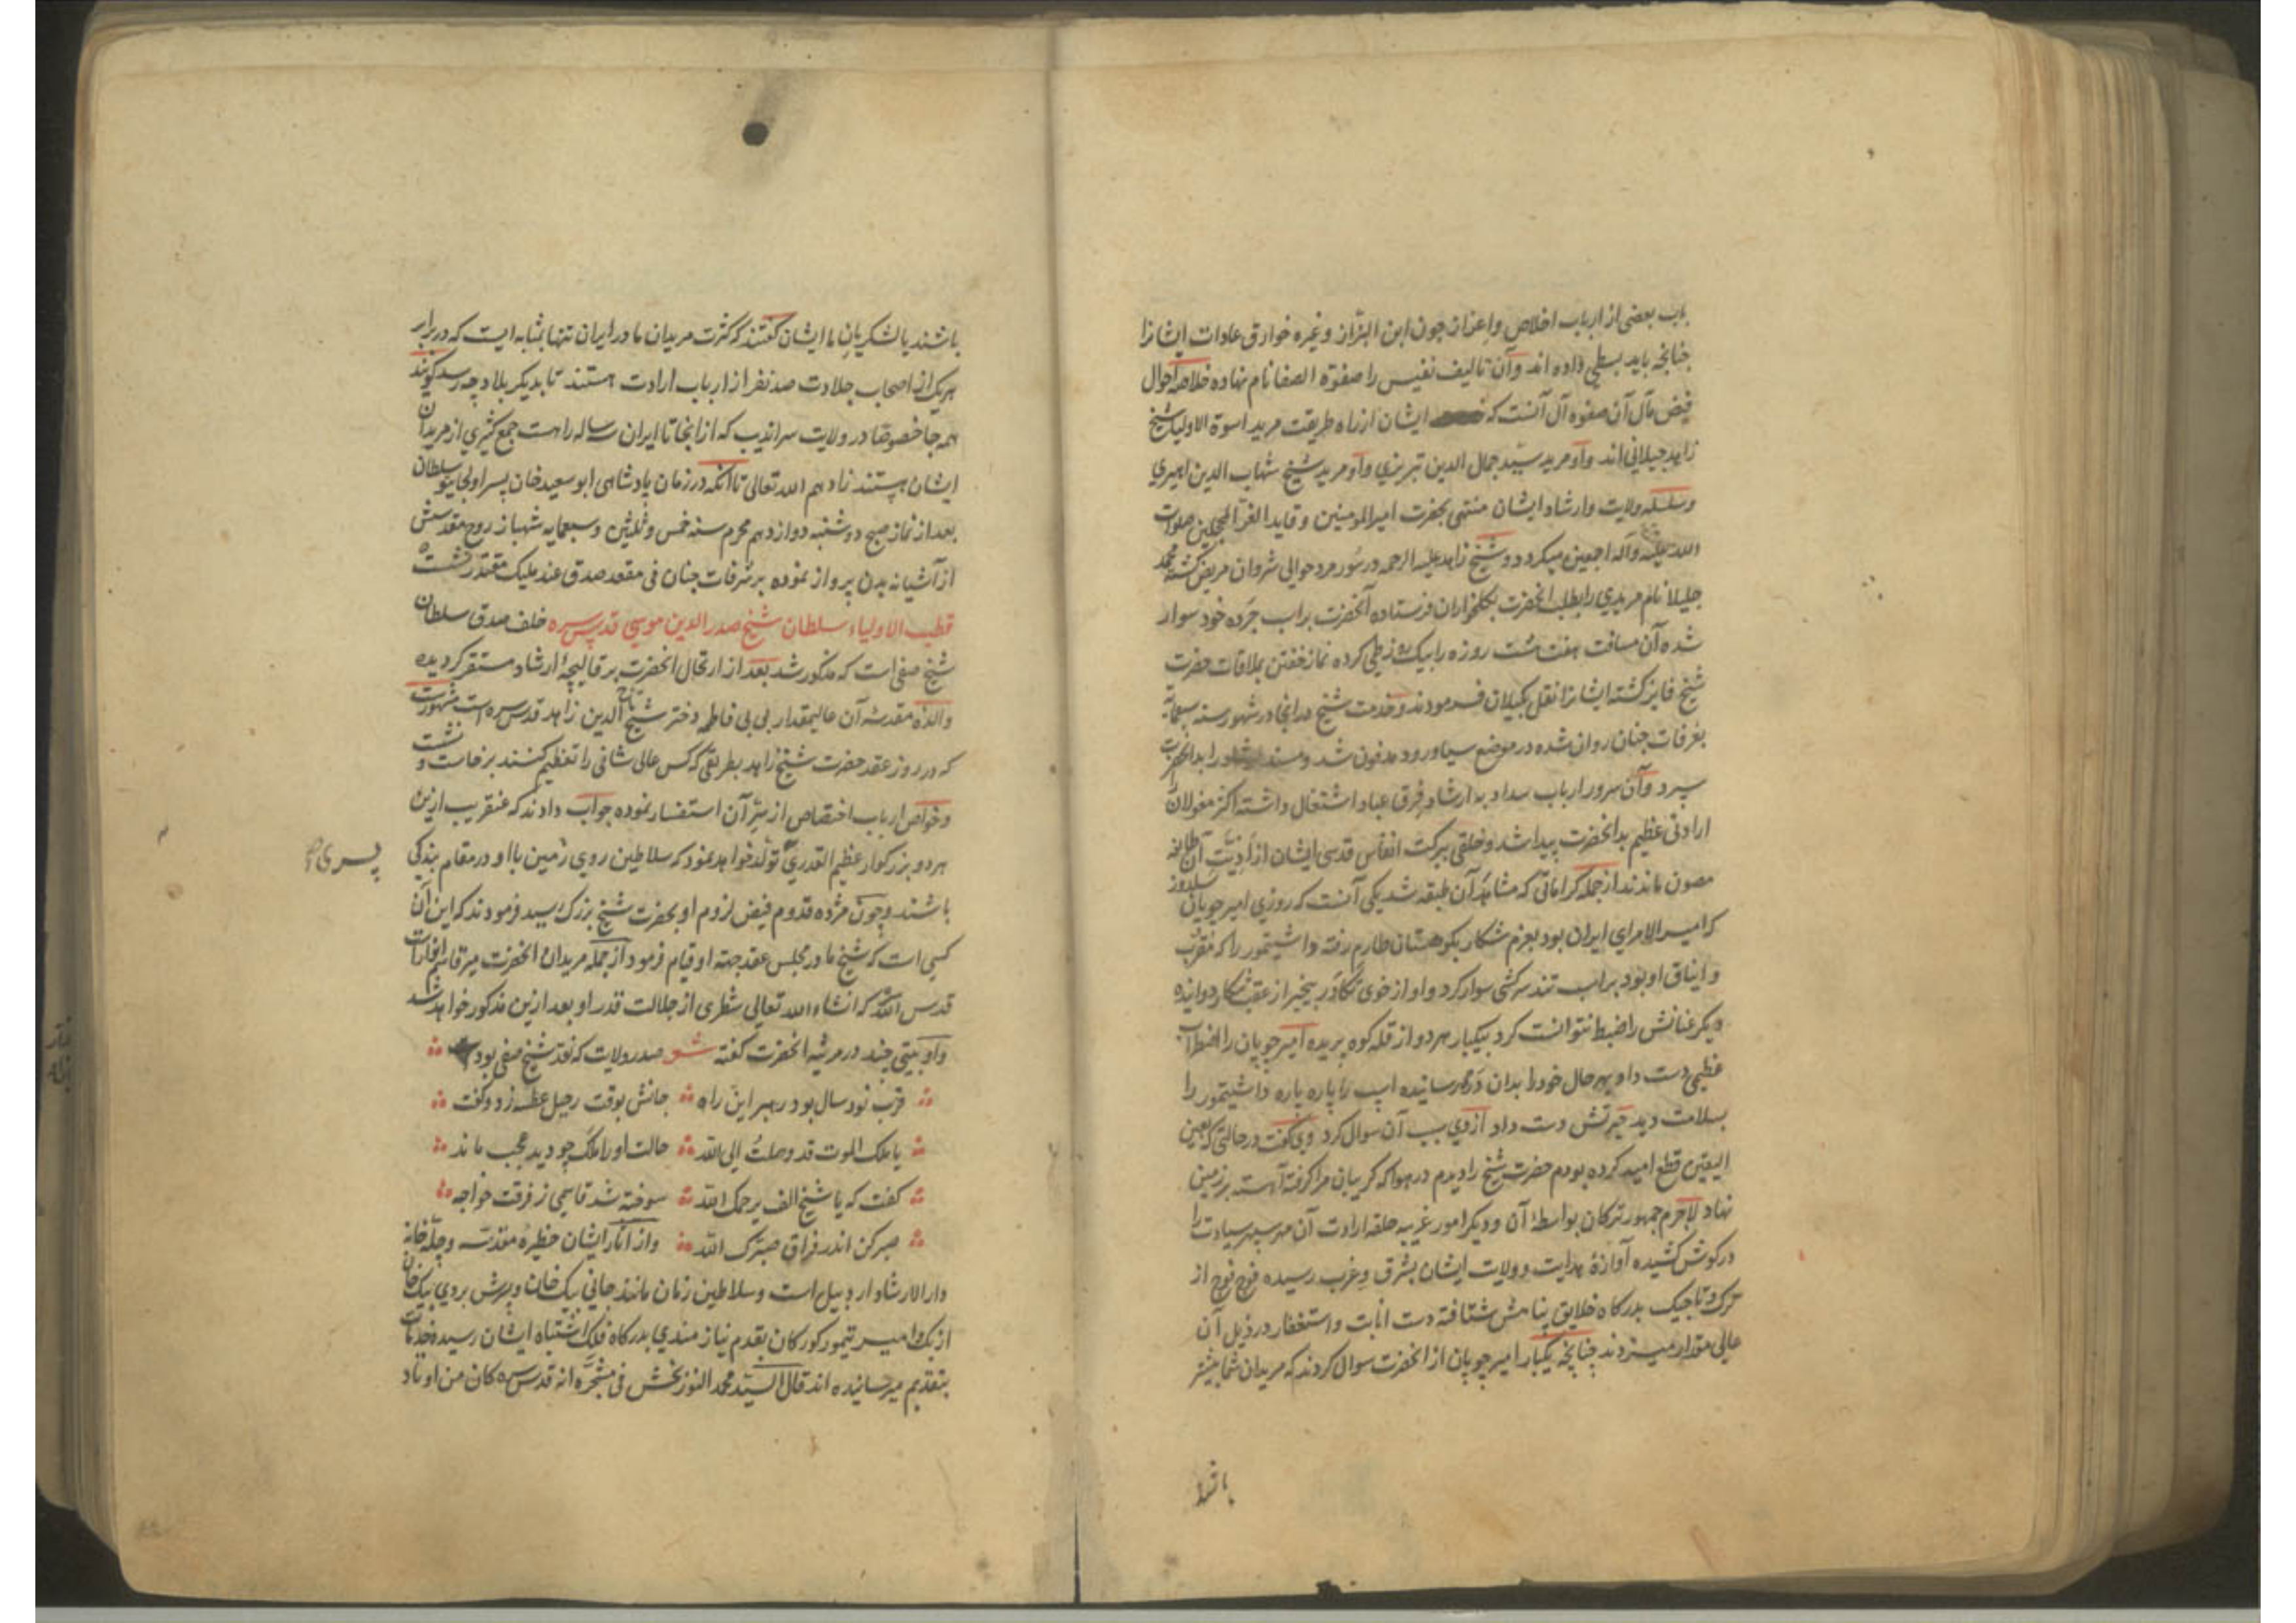 باب بعضی از ارباب اخلاص واعزاز چون ابن البزاز و غیره خوارق عادات ایشانرا
چنانچه باید بسطی داده اند وآن تالیف نفیس را صفوة الصفا نام نهاده خلاصه احوال
فیض مآل آن صفوه آل آنست که ایشان از راه طریقت مرید اسوة الاولیا شیخ
زاهد جیلانی اند واو مرید سید جمال الدین تبریزی واو مرید شیخ شهاب الدین اهری
وسلسله ولایت وارشاد ایشان منتهی بحضرت امیرالمومنین وقاید الغر المحجلین صلوات
الله علیه وآله اجمعین میگردد و شیخ زاهد علیه الرحمه در سور مرد حوالی شروان مریض گشته محمد
جلیلا نام مریدی را بطلب انحضرت بکلخواران فرستاده آنحضرت بر اسب جرده خود سوار
شده آن مسافت هفت هشت روزه را بیک روز طی کرده نماز خفتن بملاقات حضرت
شیخ فایز گشته ایشانرا نقل بگیلان فرمودند وخدمت شیخ در انجا در شهور سنه سبعمایة
بغرفات جنان روان شده در موضع سیاورود مدفون شد ومسند ارشاد را بدانحضرت
سپرد وآن سرور ارباب سداد به ارشاد فرق عباد اشتغال داشته اکثر مغولان را
ارادتی عظیم بدانحضرت پیدا شد وخلقی ببرکت انفاس قدسی ایشان از اذیت آن طایفه
مصون ماندند از جمله کراماتی که مشاهد آن طبقه شد یکی آنست که روزی امیر چوپان سلدوز
که امیر الامرای ایران بود بعزم شکار بکوهستان طارم رفته واشیتمور را که مقرب
و ایناق او بود بر اسب تند سرکشی سوار کرد واو از خوی تکاور بیخبر از عقب شکار دوانیده
دیگر عنانش را ضبط نتوانست کرد بیکبار هر دو از قله کوه پریده امیر چوپان را اضطراب
عظیمی دست داد بهر حال خود را بدان دره رسانیده اسپ را پاره پاره واشیتمور را
بسلامت دید حیرتش دست داد از وی سبب آن سوال کرد وی گفت در حالتی که بعین
الیقین قطع امید کرده بودم حضرت شیخ را دیدم در هوا که گریبان مرا گرفته آهسته بر زمین
نهاد لاجرم جمهور ترکان بواسطۀ آن ودیگر امور غریبه حلقه ارادت آن مهر سپهر سیادت را
در گوش کشیده آوازۀ هدایت وولایت ایشان بشرق وغرب رسیده فوج فوج از
ترک و تاجیک بدرگاه خلایق پناهش شتافته دست انابت واستغفار در ذیل آن
عالی مقدار میزدند چنانچه یکبار امیر چوپان از انحضرت سوال کردند که مریدان شما بیشتر
باشند
باشند یا لشکریان ما ایشان گفتند که کثرت مریدان ما در ایران تنها بمثابه ایست که در برابر
هر یک از اصحاب جلادت صد نفر از ارباب ارادت هستند تا بدیگر بلاد چه رسد گویند
همه جا خصوصا در ولایت سراندیب که از انجا تا ایران سه ساله راهست جمع کثیری از مریدان
ایشان هستند زادهم الله تعالی تا انکه در زمان پادشاهی ابوسعید خان پسر اولجایتو سلطان
بعد از نماز صبح دوشنبه دوازدهم محرم سنه خمس وثلثین وسبعمایه شهباز روح مقدسش
از آشیانه بدن پرواز نموده بر شرفات جنان فی مقعد صدق عند ملیک مقتدر نشست
قطب الاولیاء سلطان شیخ صدرالدین موسی قدس سره خلف صدق سلطان
شیخ صفی است که مذکور شد بعد از ارتحال انحضرت بر قالیچۀ ارشاد مستقر گردیده
والدۀ مقدسه آن عالیمقدار بی بی فاطمه دختر شیخ تاج الدین زاهد قدس سره است مشهورست
که در روز عقد حضرت شیخ زاهد بطریقی که کس عالی شانی را تعظیم کنند برخاست و نشست
وخواص ارباب اختصاص از سر آن استفسار نموده جواب دادند که عنقریب ازین
هر دو بزرگوار عظیم القدری تولد خواهد نمود که سلاطین روی زمین با او در مقام بندگی
پسری
باشند وچون مژده قدوم فیض لزوم او بحضرت شیخ بزرگ رسید فرمودند که این آن
کسی است که شیخ ما در مجلس عقد جهته او قیام فرمود از جمله مریدان انحضرت میر قاسم انوارست
قدس الله سره که انشاء الله تعالی شطری از جلالت قدر او بعد ازین مذکور خواهد شد
واو بیتی چند در مرثیه انحضرت گفته شعر صدر ولایت که نقد شیخ صفی بود
قرب نود سال بود رهبر این راه جانش بوقت رحیل عطسه زد وگفت
یا ملک الموت قد وصلت الی الله حالت او را ملک چو دید عجب ماند
گفت که یا شیخ الف یرحمک الله سوخته شد قاسمی ز فرقت خواجه
صبر کن اندر فراق صبّرک الله واز آثار ایشان حظیرۀ مقدسه وچله خانه
دارالارشاد اردبیل است وسلاطین زمان مانند جانی بیک خان وپسرش بردی بیک خان
ازبک وامیر تیمور کورکان بقدم نیازمندی بدرگاه فلک اشتباه ایشان رسیده خدمات
بتقدیم میرسانیده اند قال السید محمد النور بخش فی مشجره انه قدس سره کان من اوتاد